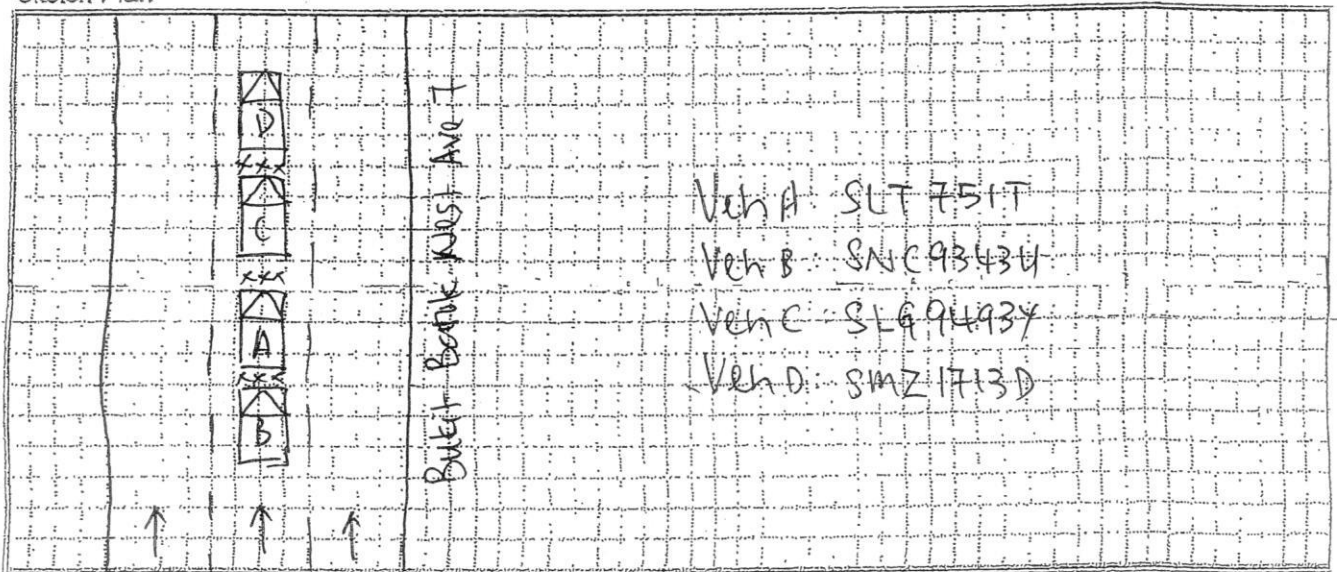 Sketch Plan
D
C
A
B
Bukit Batok West Ave 7
Veh A: SLT 751T
Veh B: SNC9343U
Veh C: SLG9493Y
Veh D: SMZ1713D